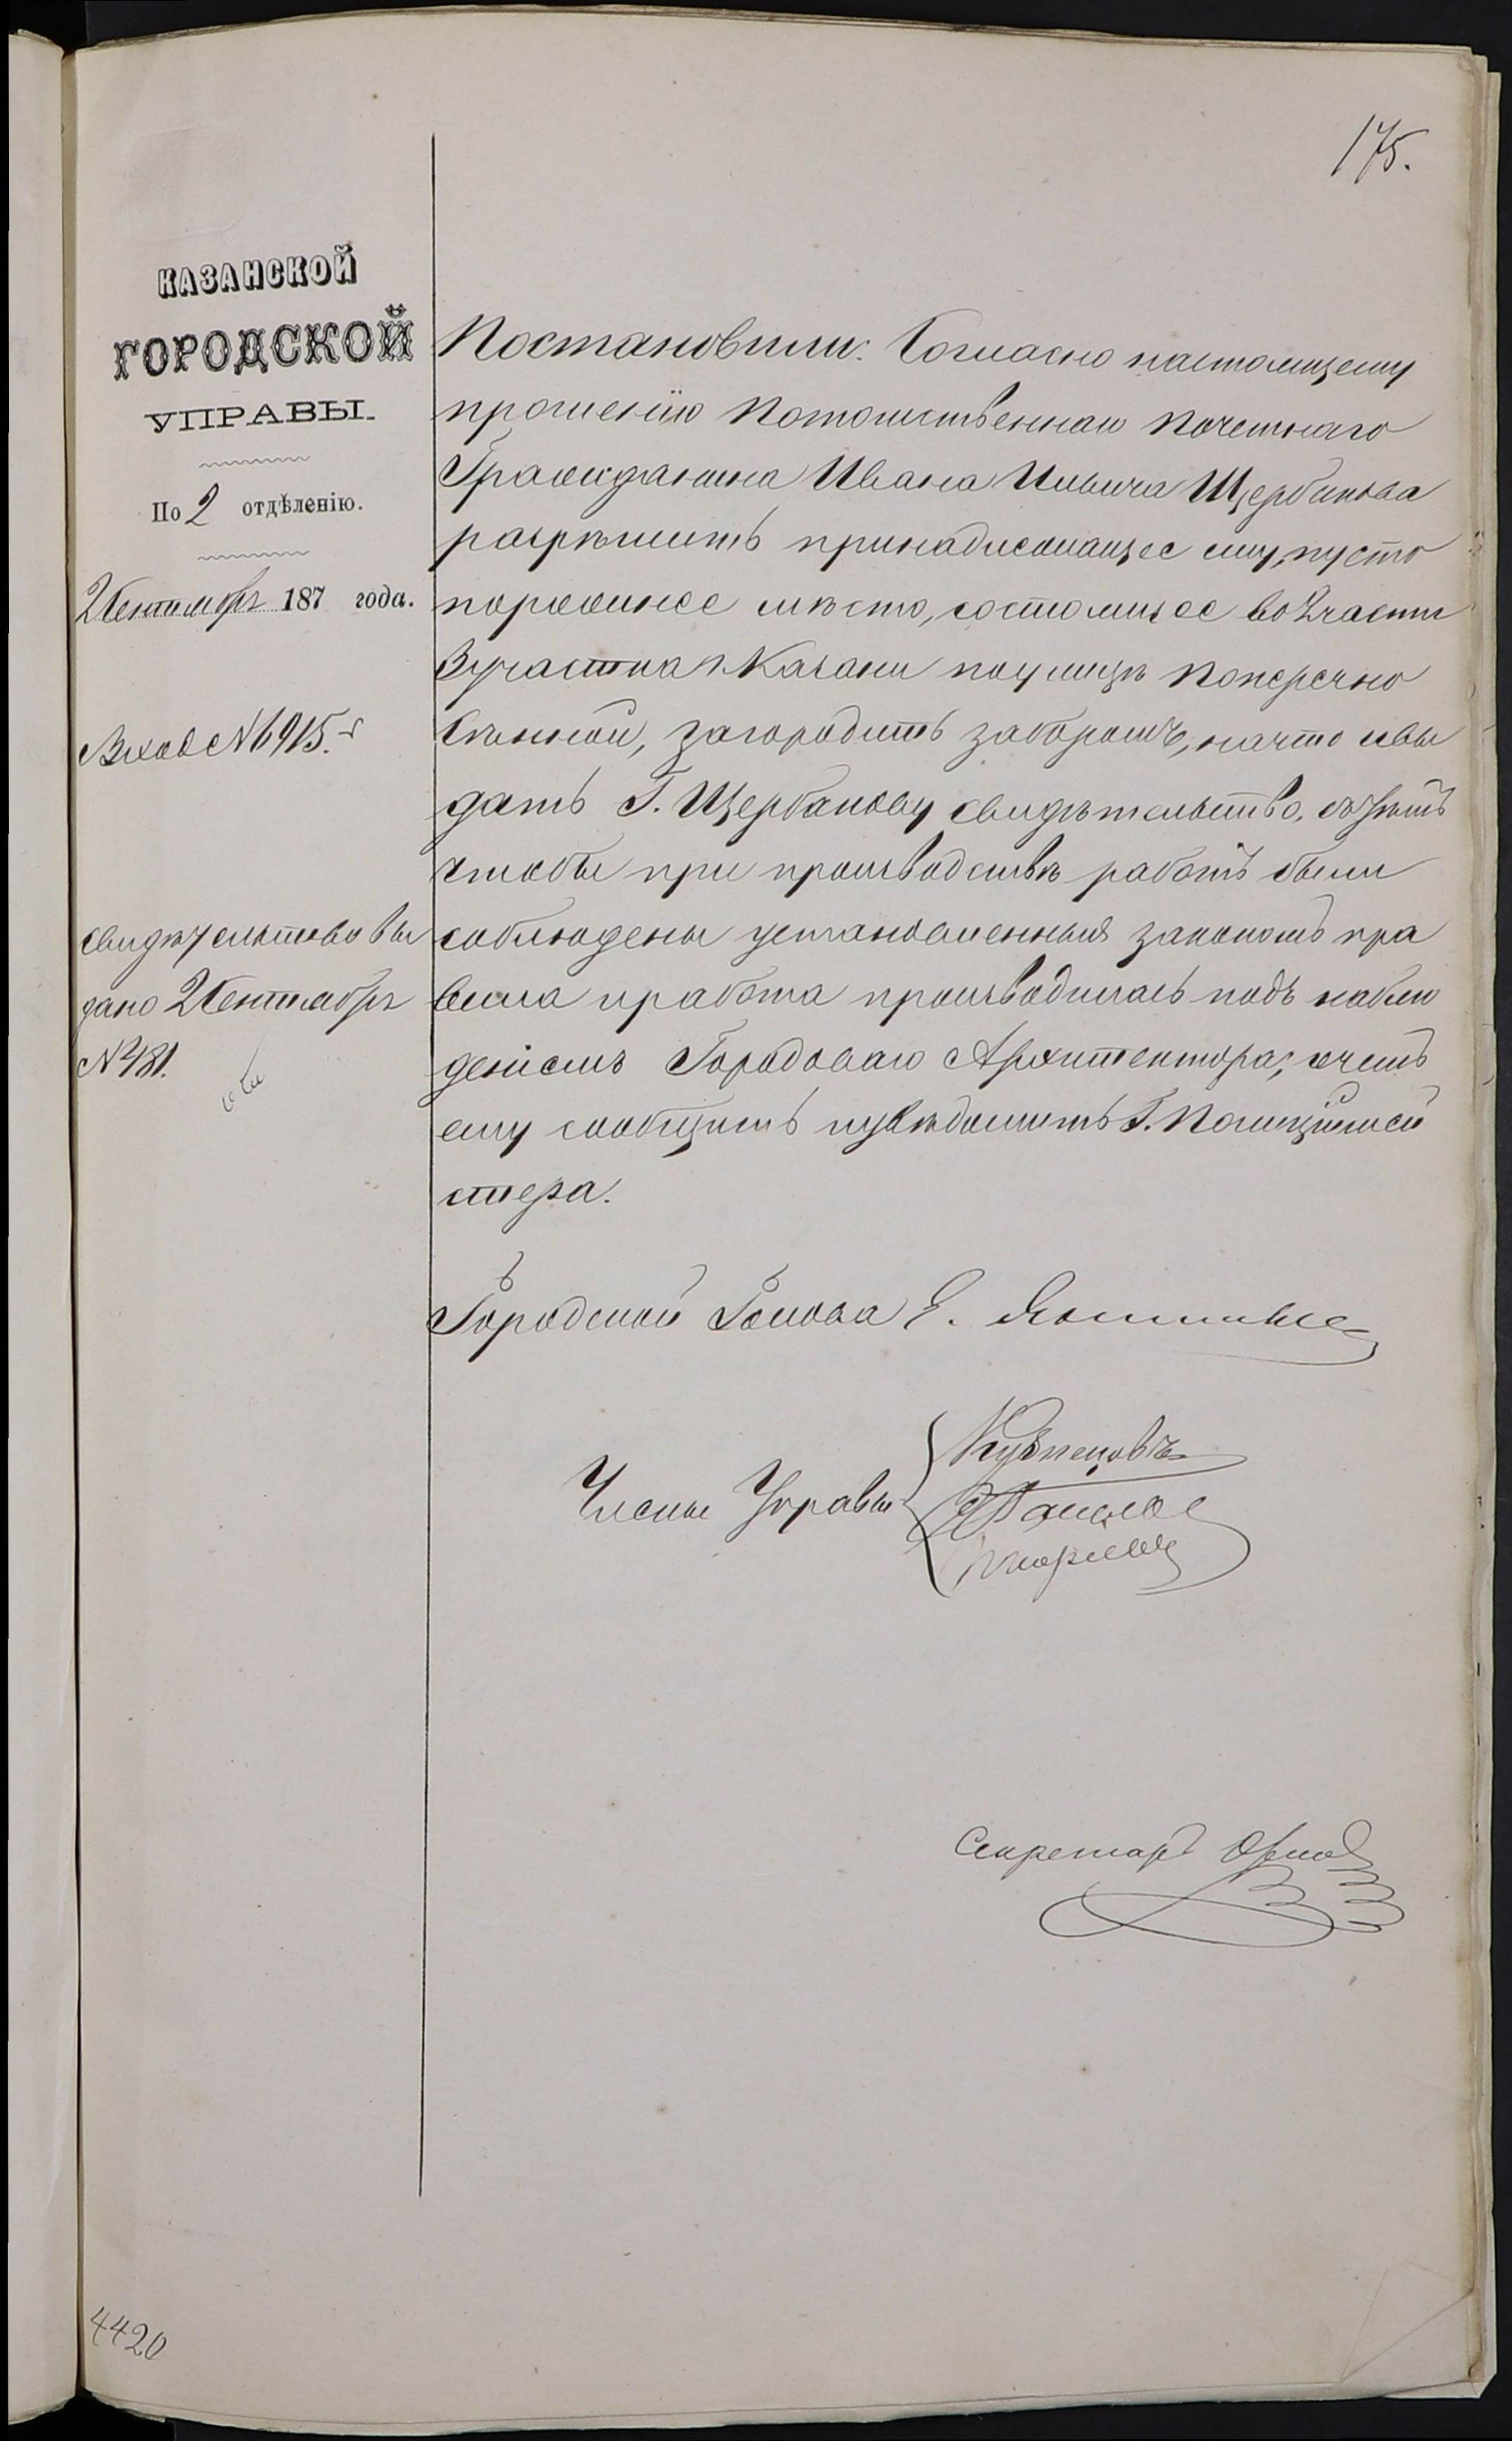 175.
КАЗАНСКОЙ
ГОРОДСКОЙ
УПРАВЫ.
По 2 отдѣленію.
2 Сентября 187 года.
Вход № 6915.
Свидѣтельство вы
дано 2 Сентября
№ 481.
Постановили: Согласно настоящему
прошенію Потомственнаго Почетнаго
Гражданина Ивана Ильича Щербакова
разрѣшить принадлежащее ему, пусто
порожнее мѣсто, состоящее во 2 части
3 участка г. Казани по улицѣ Поперечно
, загородить заборомъ, на что и вы
дать Г. Щербакову свидѣтельство, съ тѣмъ
чтобы при производствѣ работъ были
соблюдены установленныя закономъ пра
вила и работа производилась подъ наблю
деніемъ Городоваго Архитектора, о чемъ
ему сообщить и увѣдомить Г. Полиціймей
стера.
Городской Голова Е.
Члены Управы
Кузнецовъ
Секретарь
4420